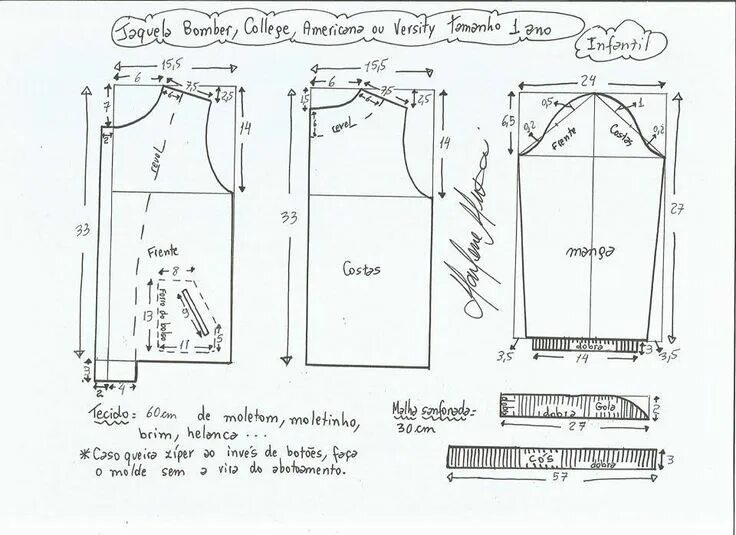 Jaqueta Bomber, College, Americana ou Versity tamanho 1 ano
Infantil
15,5
6
7,5
7
6
2,5
14
2
revel
33
Frente
8
Forro do bolso
13
9
11
5
3
2
4
15,5
6
7,5
1,5
6
6
2,5
14
revel
33
Costas
24
6,5
0,5
1
0,2
0,2
Frente
Costas
27
manga
3,5
dobra
3
3,5
14
Tecido = 60 cm de moletom, moletinho,
brim, helanca ...
* Caso queira zíper ao invés de botões, faça
o molde sem a vira do abotoamento.
Malha sanfonada =
30 cm
dobra
dobra
Gola
2
27
cós
dobra
3
57